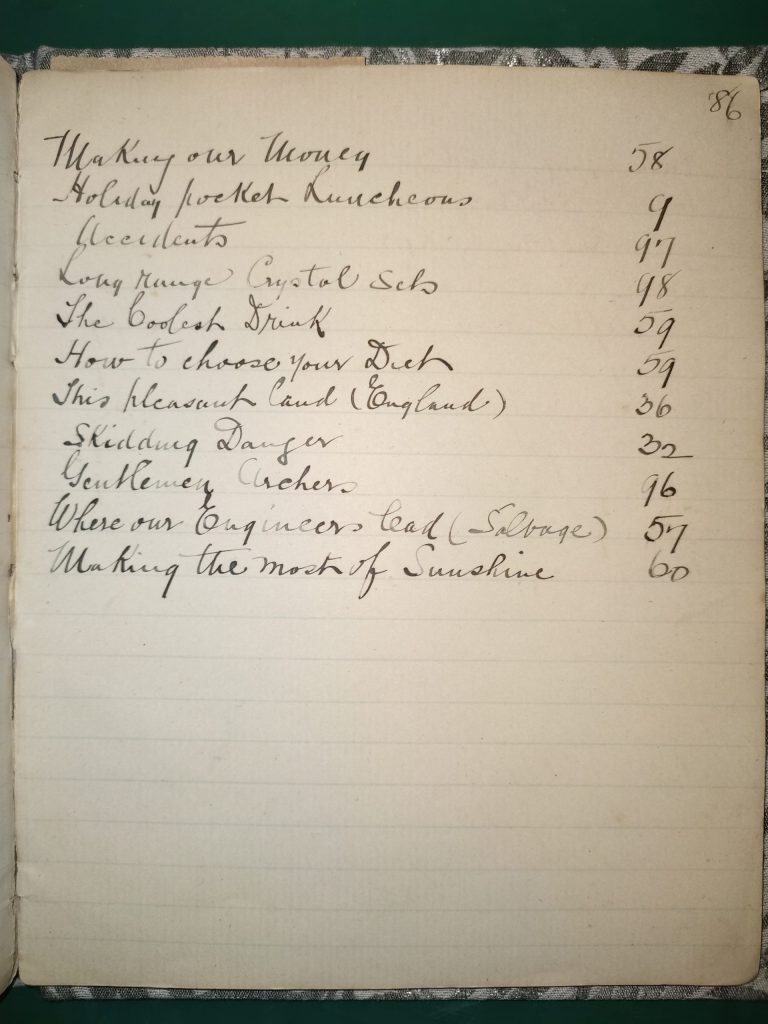 86
Making our Money 58
Holiday pocket Luncheons 9
Accidents 97
Long range Crystal Sets 98
The Coolest Drink 59
How to choose your Diet 59
This pleasant land (England) 36
Skidding Danger 32
Gentlemen Archers 96
Where our Engineers lead (Salvage) 57
Making the most of Sunshine 60